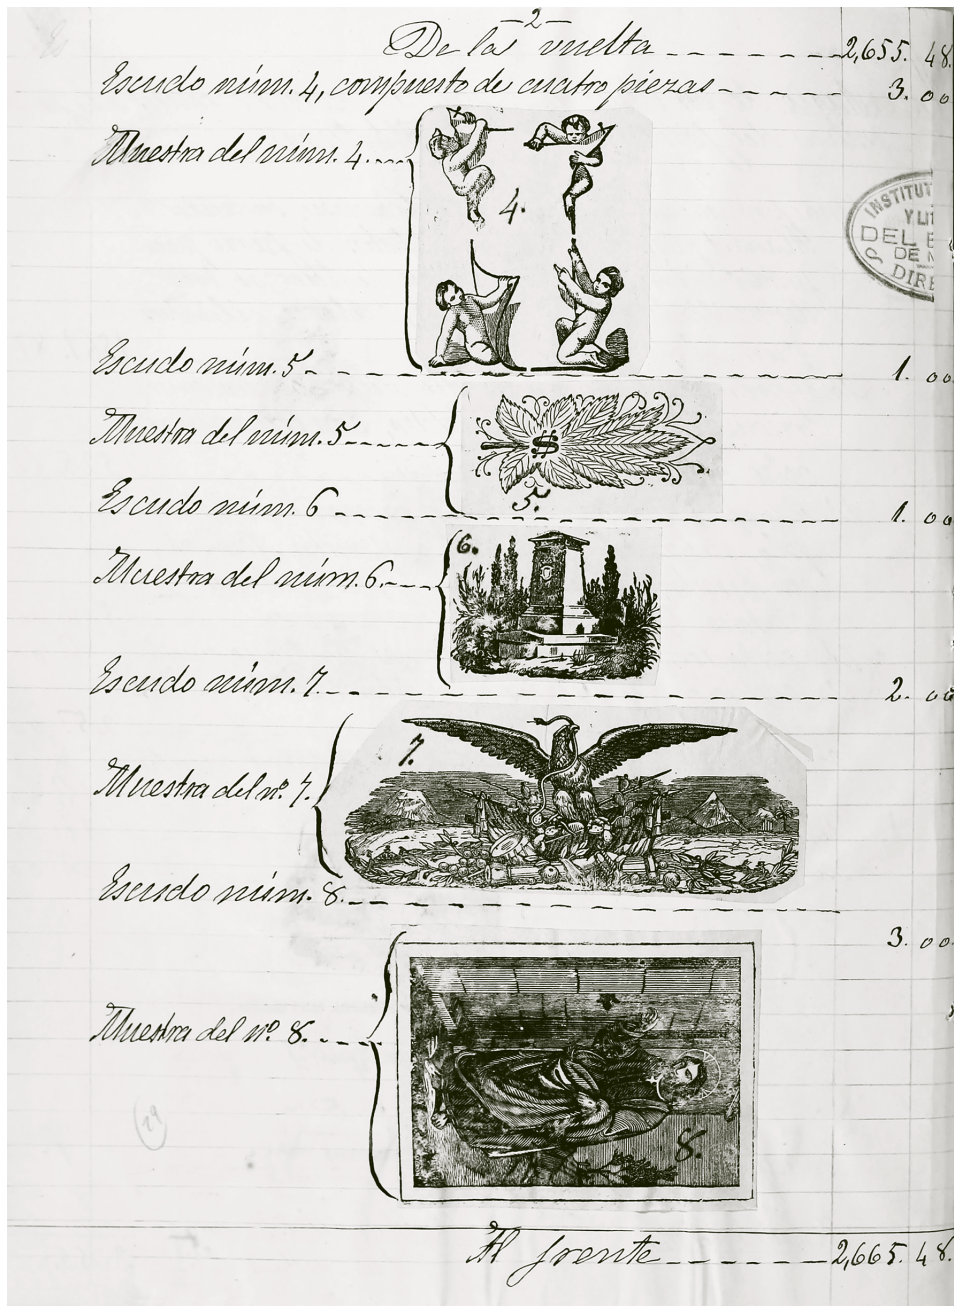 2
De la vuelta 2,655. 48.
Escudo núm. 4, compuesto de cuatro piezas 3. 00
Muestra del núm. 4.
4.
INSTITUT
Y LIT
DEL E
DE M
DIRE
Escudo núm. 5 1. 00
Muestra del núm. 5
$
5.
Escudo núm. 6 1. 00
6.
Muestra del núm. 6.
Escudo núm. 7. 2. 00
7.
Muestra del nº. 7.
Escudo núm. 8. 3. 00
Muestra del nº. 8.
8.
29
Al frente 2,665. 48.